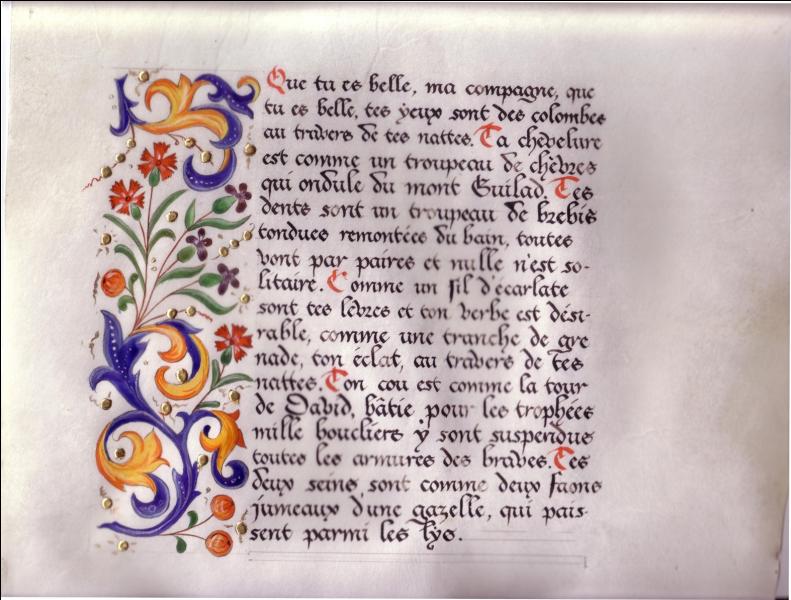 Que tu es belle, ma compagne, que
tu es belle, tes yeux sont des colombes
au travers de tes nattes. Ta chevelure
est comme un troupeau de chèvres
qui ondule du mont Guilad. Tes
dents sont un troupeau de brebis
tondues remontées du bain, toutes
vont par paires et nulle n'est so-
litaire. Comme un fil d'écarlate
sont tes lèvres et ton verbe est dési-
rable, comme une tranche de gre
nade, ton éclat, au travers de tes
nattes. Ton cou est comme la tour
de David, bâtie pour les trophées
mille boucliers y sont suspendus
toutes les armures des braves. Tes
deux seins sont comme deux faons
jumeaux d'une gazelle, qui pais-
sent parmi les lys.